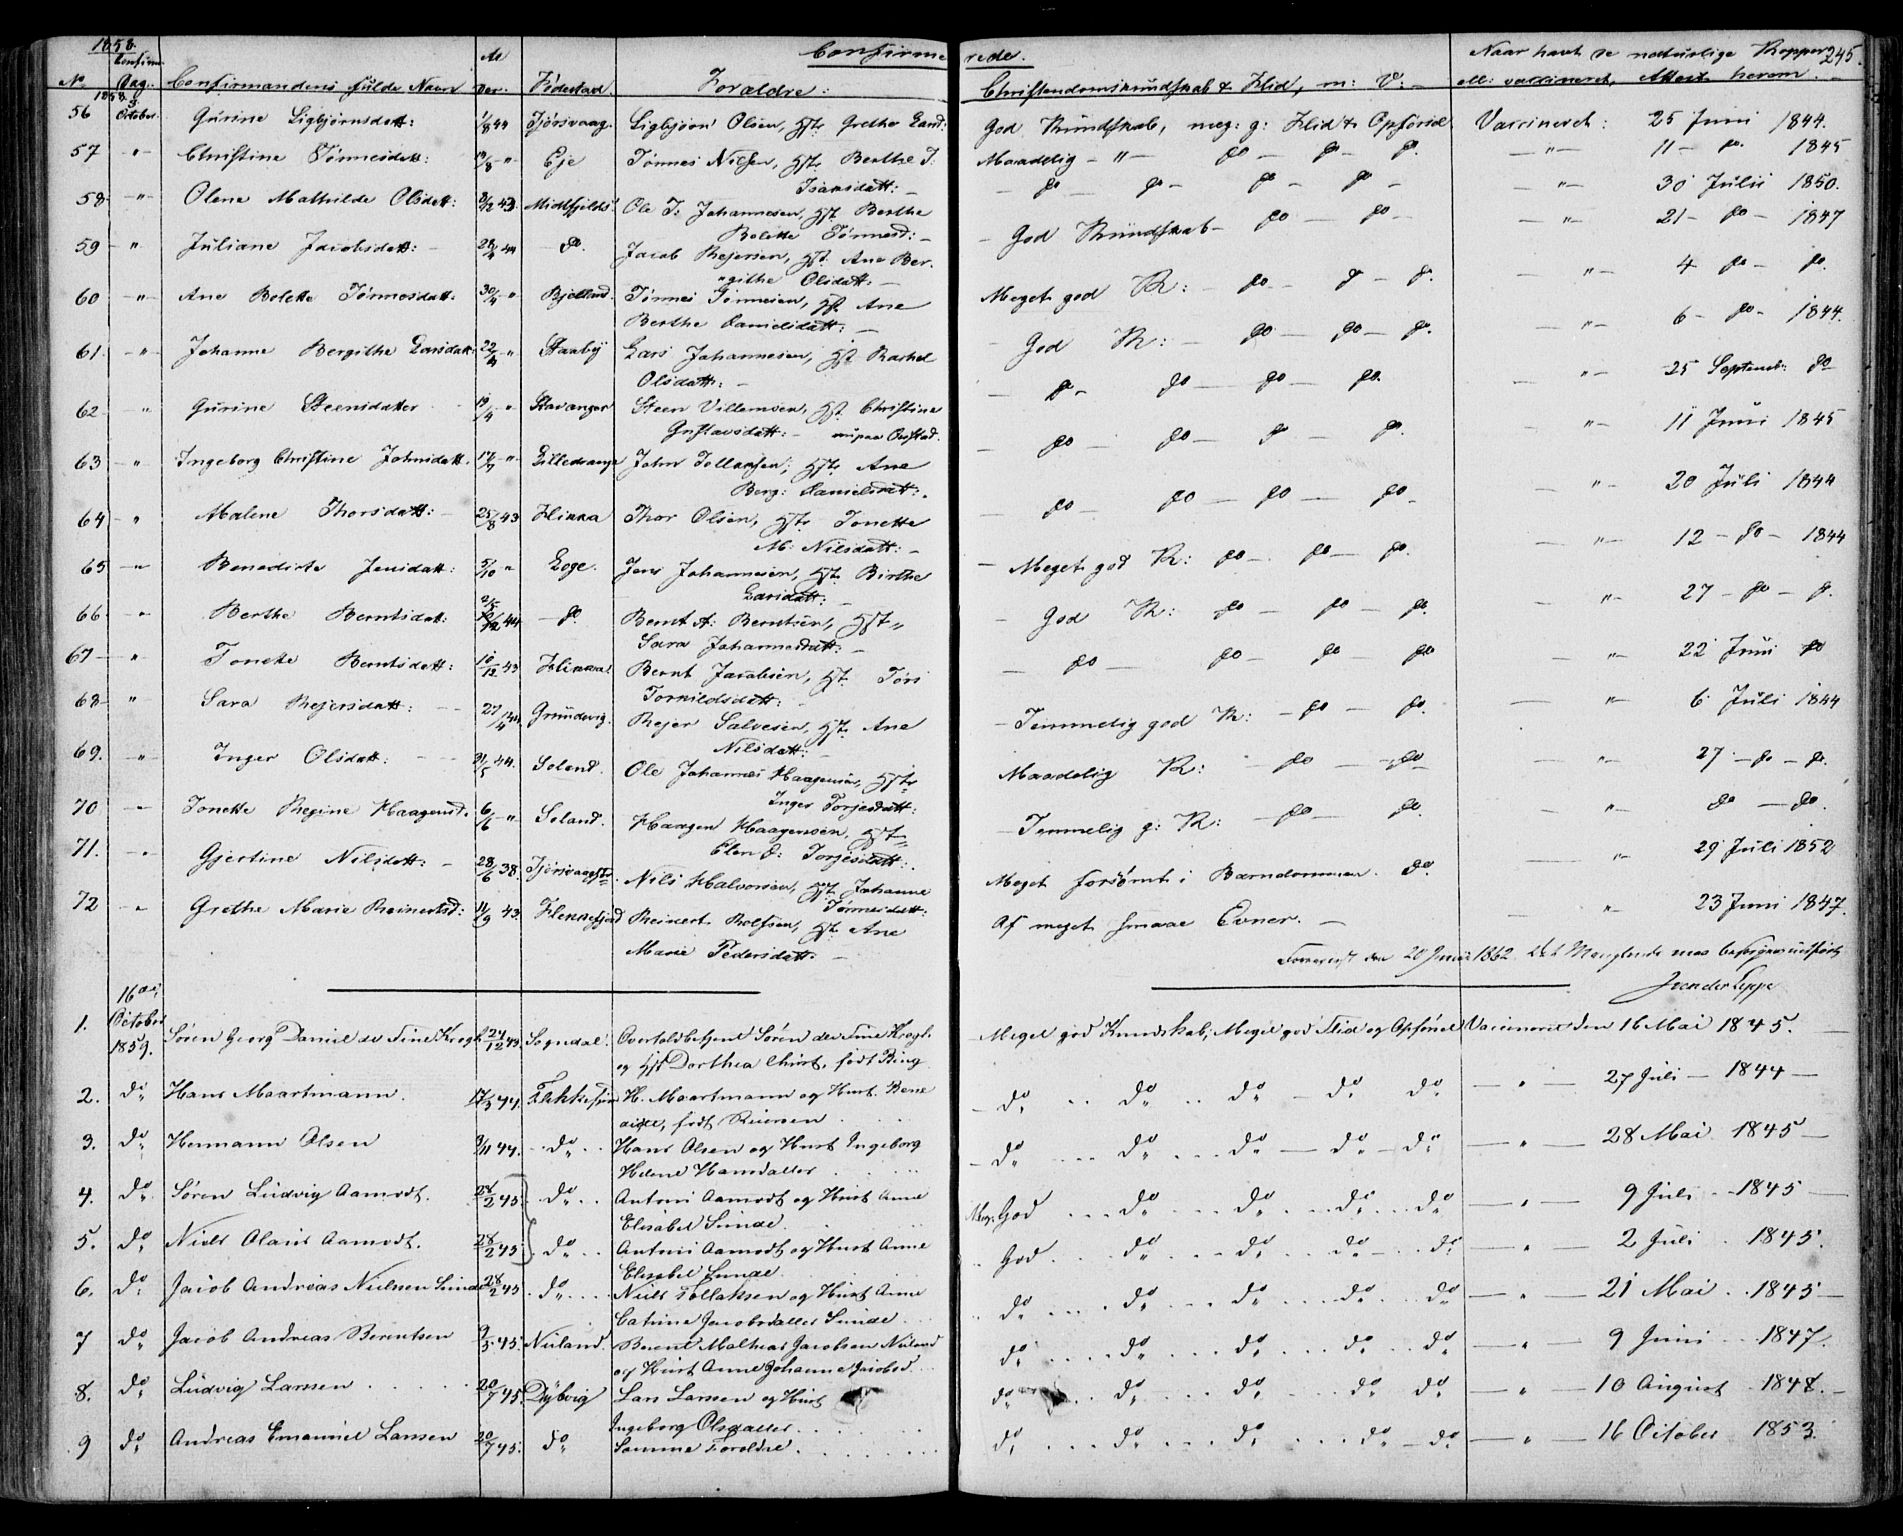 1858. Confirmerede. Naar havt de naturlige Kopper 245.
No Confirm. Dag. Confirmandens fulde Navn Al der. Fødestad. Forældre: Christendomskundskab & Flid, m: V: ell: vaccineret, Attest herom.
1858 3 October
56 Gurine Sigbjørnsdatt: 1/8 44 Tjørsvaag. Sigbjørn Olsen, Hst. Grethe Land: God Kundskab, meg: g: Flid & Opførsel Vaccineret: 25 Juni 1844.
57 -"- Christine Tønnesdatt: 19/8 -"- Eje Tønnes Nielsen, Hst. Berthe T. Maadelig -"- do - do - do. -"- 11 - do. 1845
Isaksdatt: -
58 -"- Olene Mathilde Olsdatt: 3/12 43. Midtfjelds. Ole T: Johannesen, Hst. Berthe - do - do - do - do - -"- 30 Julii 1850.
Bolette Tønnesd: -
59 -"- Juliane Jacobsdatt: - 28/4 44 - do. Jacob Rejersen, Hst. Ane Ber- - God Kundskab - do - do - -"- 21 - do - 1847
githe Olsdatt: -
60 -"- Ane Bolette Tønnesdatt. 30/4 " Bjelland. Tønnes Tønnesen, Hst. Ane Meget god K: - do - do - do. -"- 4 do - do.
Berthe Danielsdatt: -
61 -"- Johanne Bergithe Larsdatt: 22/4 " Staaby Lars Johannesen, Hst. Rachel - God K: - do - do - do. -"- 6 - do - 1844.
Olsdatt: -
62 -"- Gurine Steensdatter 19/4 " Stavanger Steen Villumsen, Hst. Christine - do - do - do - do. -"- 25 Septemb: do
Gustavsdatt: -
63 -"- Ingeborg Christine Johnsdatt. 17/7 " Lilledrange John Tollaksen, Hst. Ane - do - do - do - do. -"- 11 Juni 1845
Berg: Danielsdatt:
64 -"- Malene Thorsdatt: - 25/8 43 Flikka Thor Olsen, Hst. Tonette - do - do - do - do - -"- 20 Juli 1844
M: Nilsdatt: -
65 -"- Benedicte Jensdatt: 5/10 " Loge. Jens Johannesen, Hst. Birthe - Meget god K: do - do - do. -"- 12 - do - 1844
Larsdatt: -
66 -"- Berthe Berntsdatt: 44 - do. Bernt A: Berntsen, Hst. - God K: - do - do - do. -"- 27 - do - do.
Sara Johannesdatt: -
67 -"- Tonette Berntsdatt: 10/12 43 Flikka: Bernt Jacobsen, Hst. Tori - do - do - do - do -"- 22 Juni do
Torkildsdatt: -
68 -"- Sara Rejersdatt: - 27/4 44 Grundevig. Rejer Salvesen, Hst. Ane - Temmelig god K: - do - do. -"- 6 Juli 1844
Nilsdatt: -
69. -"- Inger Olsdatt: - 31/5 44. Soland. Ole Johannes Haagensen, Hst. Maadelig K: - do - do - -"- 27 - do - do.
Inger Torjesdatt:
70 -"- Tonette Regine Haagensd. 6/6 " Soland. Haagen Haagensen, Hst. - Temmelig g: K: - do - do. -"- do - do.
Elen T: Torjesdatt:
71. -"- Gjertine Nilsdatt: - 28/6 38. Tjørsvaag Nils Halvorsen, Hst. Johanne Meget forsømt i Barndommen. do. -"- 29 Juli 1852
Tønnesdatt:
72 -"- Grethe Marie Reinertsd: 11/9 43 Flekkefjord Reinert Rolfsen, Hst. Ane Af meget smaae Evner. - -"- 23 Juni 1847.
Marie Pedersdatt. -
den 20 Juni 1862
16de October 1859.
1. Søren Georg Daniel de Fine Krogh 24/12 43 Sogndal. Overtoldbetjent Søren de Fine Krogh Meget god Kundskab, Meget god Flid og Opførsel Vaccineret den 16 Mai 1845.
og Hst. Dorthea Christ. født Bing
2. do Hans Maartmann. 17/5 44. Flekkefjord H. Maartmann og Hust. Bene - do .. do .. do - do do - " - 27 Juli - 1844 -
dicte, født Reiersen
3. do Hermann Olsen 3/11 44. do .. Hans Olsen og Hust Ingeborg - do ... do ... do - do - do - " - 28 Mai 1845 -
Helene Hansdatter
4. do Søren Ludvig Aamodt. 28/2 45. do .. Antoni Aamodt og Hust Anne Meg: God ... do ... do ... do ... do - " - 9 Juli - 1845 -
Elisabet Sunde.
5. do Niels Olaus Aamodt. 28/2 45. do .. Antoni Aamodt og Hust Anne God ... do ... do ... do - do - " - 2 Juli . 1845.
Elisabet Sunde.
6. do Jacob Andreas Nielsen Sunde 28/2 45 . do .... Niels Tollaksen og Hust Anne do .... do ... do ... do ... do - " - 21 Mai .. 1845 -
Catrine Jacobsdatter Sunde
7 do Jacob Andreas Berentsen 9/5 45. Nuland. Berent Mathias Jacobsen Nuland do .... do ... do ... do ... do - " - 9 Juni ... 1847.
og Hust Anne Johanne Jacobsd...
8. do Ludvig Larsen 20/7 45. Dybvig Lars Larsen og Hust do ... do ... do ... do .. do - " - 10 August 1848. -
Ingeborg Olsdatter
9 do Andreas Emanuel Larsen 20/7 45. do Samme Forældre. do .... do ... do ... do - do - " - 16 October 1853.